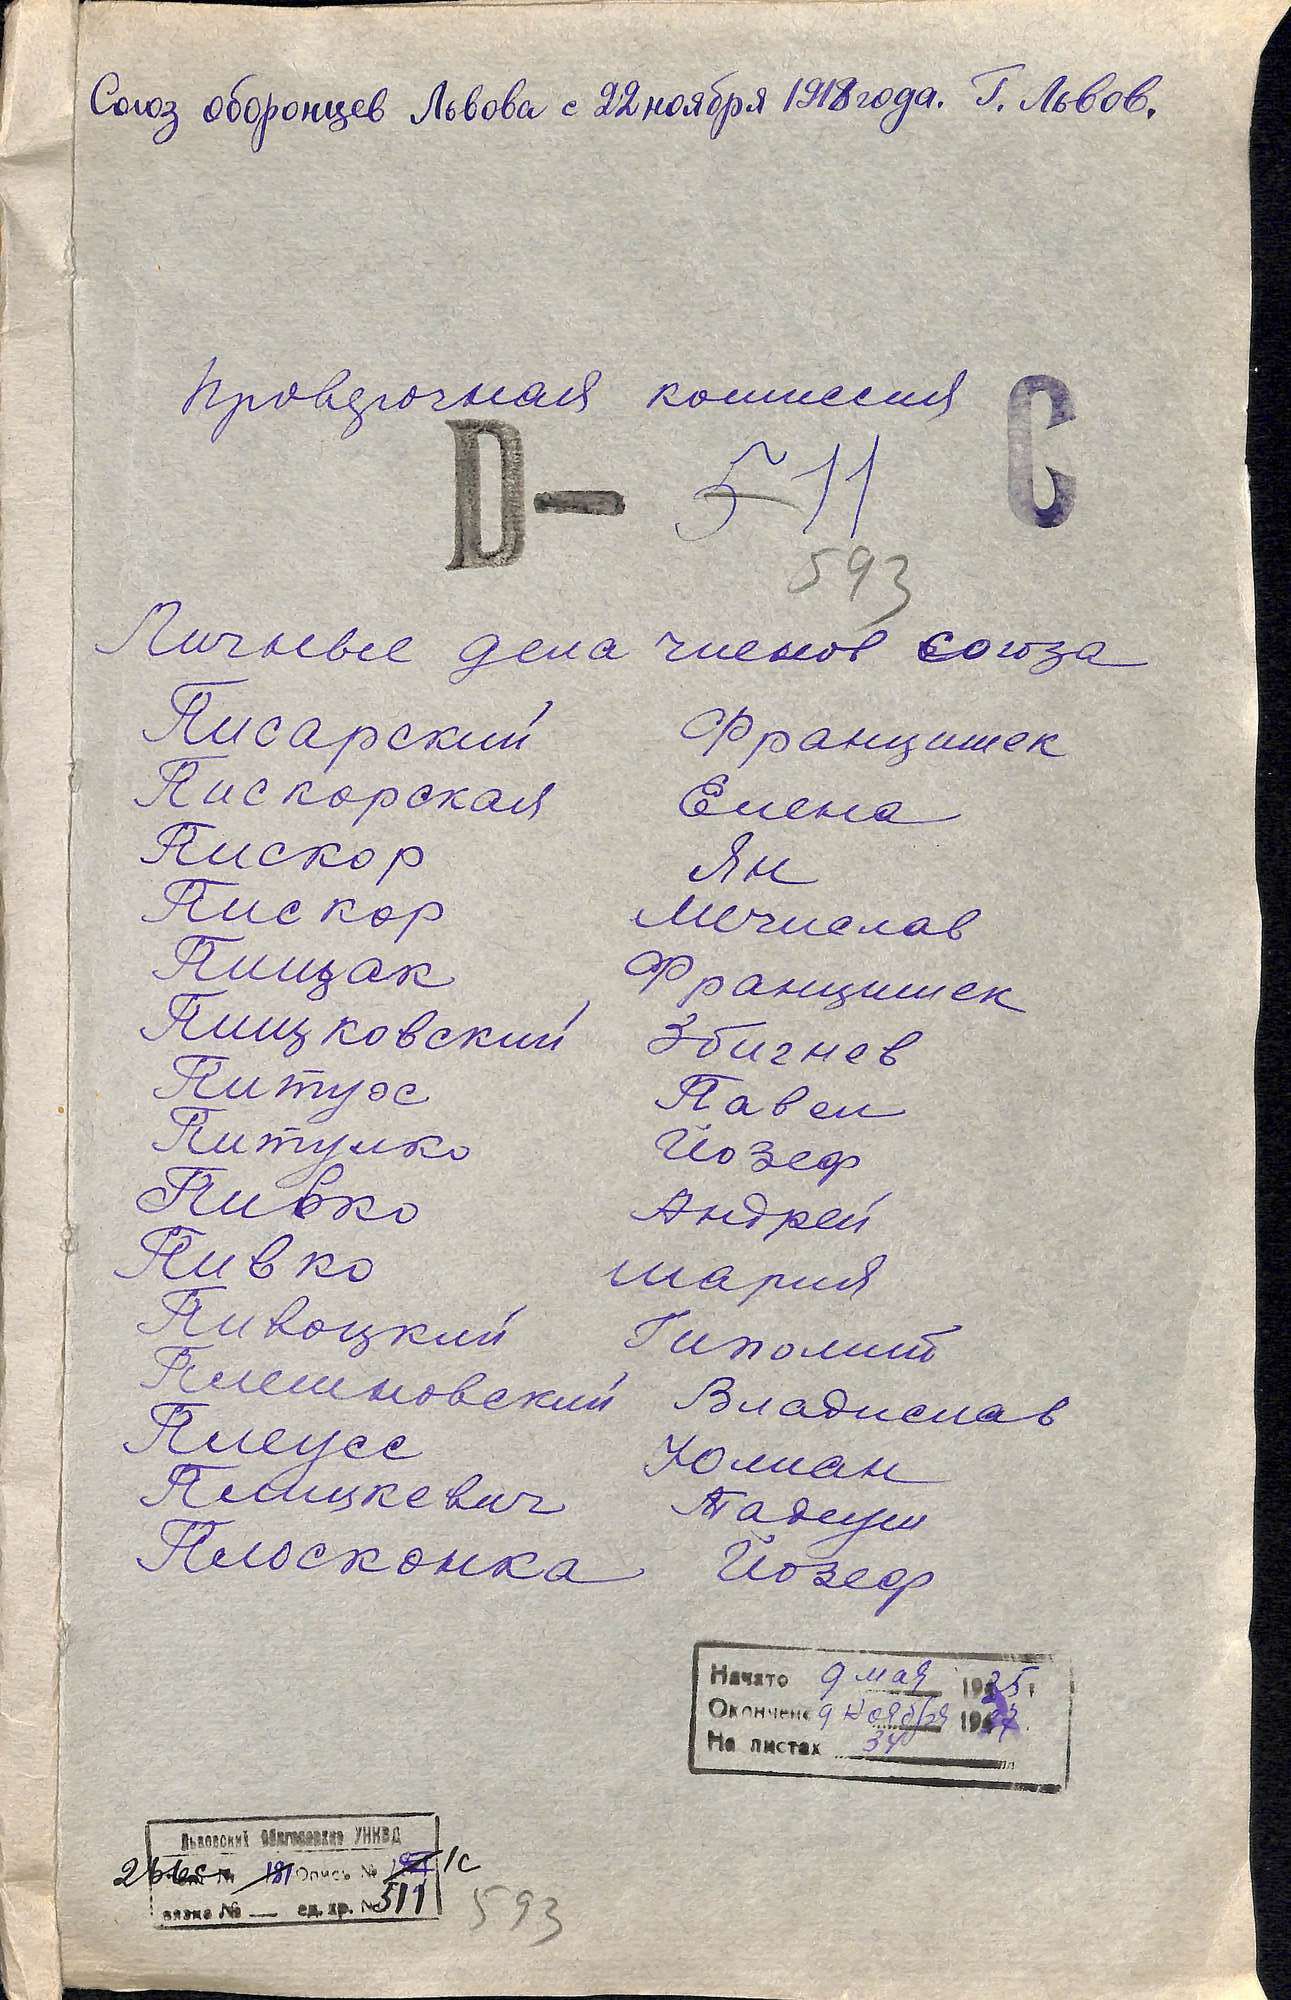 Союз оборонцев Львова с 22 ноября 1918 года. Г. Львов.
Проверочная комиссия
D- 511 C
593
Личные дела членов союза
Писарский Францишек
Пискорская Елена
Пискор Ян
Пискор Мечислав
Пищак Францишек
Пищковский Збигнев
Питуос Павел
Питулко Йозеф
Пивко Андрей
Пивко Мария
Пивоцкий Гиполит
Плешновский Владислав
Плеусс Юлиан
Плицкевич Тадеуш
Плосконка Йозеф
Начато 9 мая 1935 г
Окончено 9 ноября 1937.
На листах 34
Львовский Облгосархив УНКВД
181 Опись № 1с
вязка № — ед. хр. № 511
593